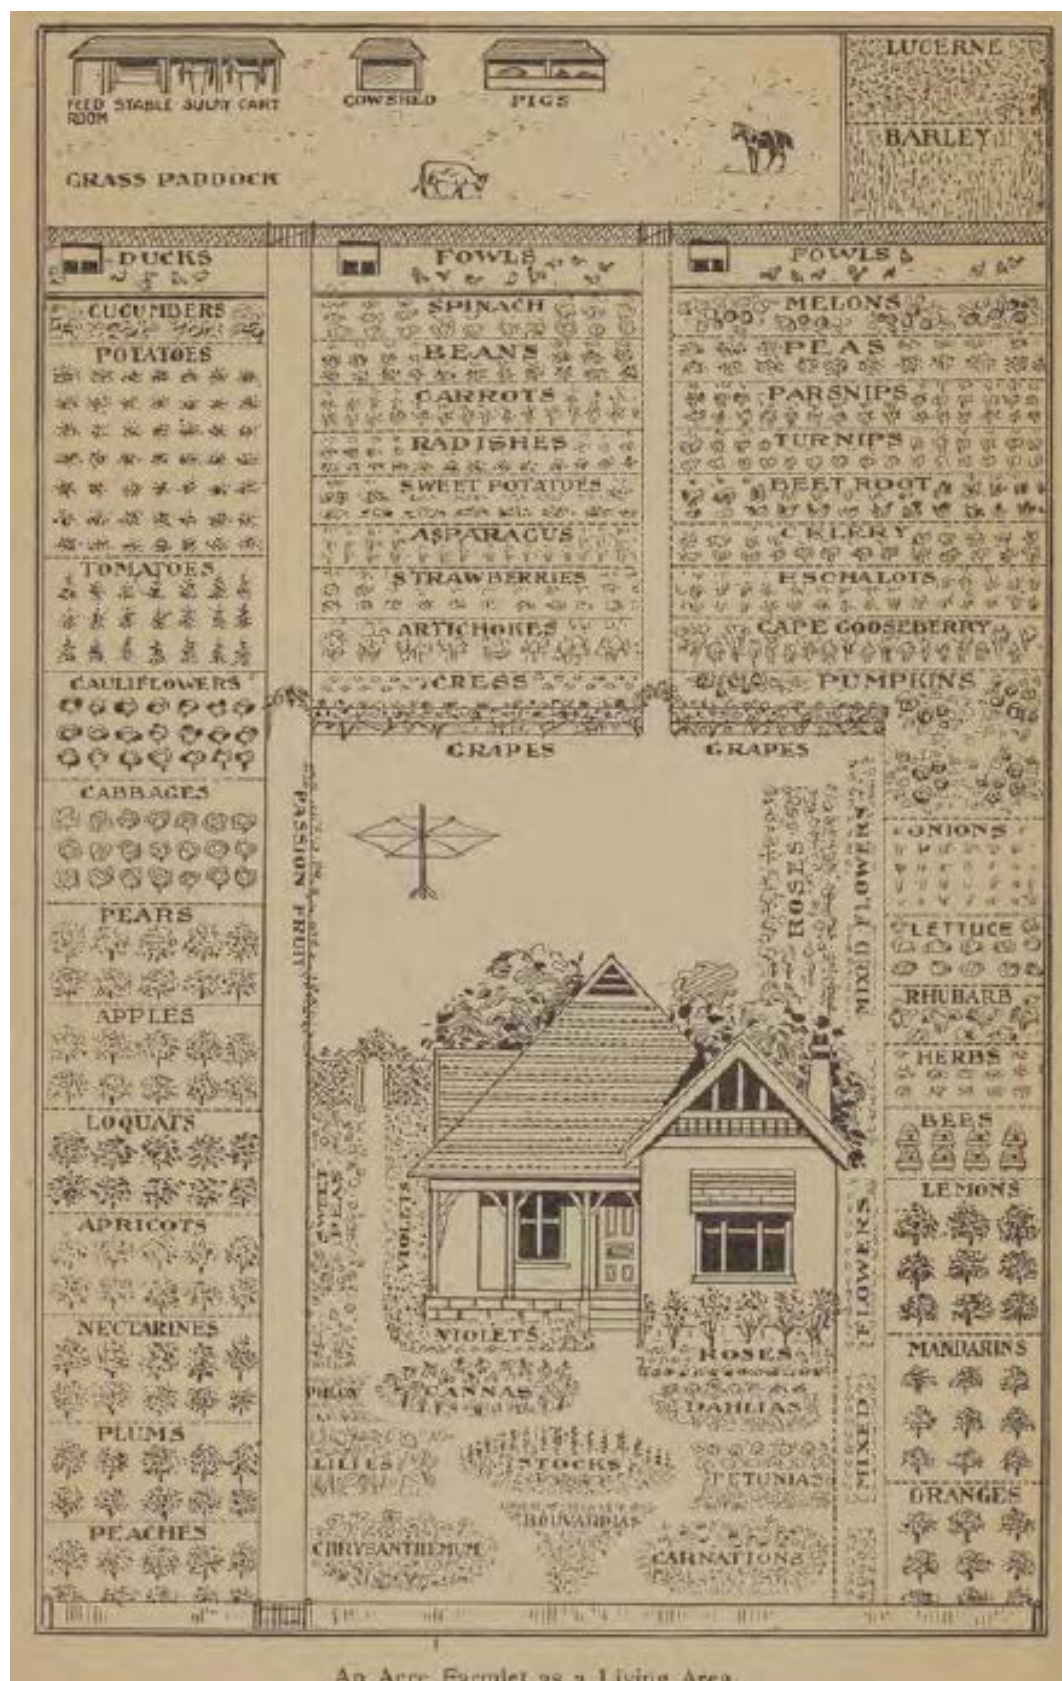 FEED STABLE SULKY CART
ROOM
COWSHED
PIGS
LUCERNE
BARLEY
GRASS PADDOCK
DUCKS
FOWLS
FOWLS
CUCUMBERS
POTATOES
TOMATOES
CAULIFLOWERS
CABBAGES
PEARS
APPLES
LOQUATS
APRICOTS
NECTARINES
PLUMS
PEACHES
SPINACH
BEANS
CARROTS
RADISHES
SWEET POTATOES
ASPARAGUS
STRAWBERRIES
ARTICHOKES
CRESS
GRAPES
MELONS
PEAS
PARSNIPS
TURNIPS
BEET ROOT
CELERY
ESCHALOTS
CAPE GOOSEBERRY
PUMPKINS
GRAPES
ONIONS
LETTUCE
RHUBARB
HERBS
BEES
LEMONS
MANDARINS
ORANGES
PASSION FRUIT
ROSES
MIXED FLOWERS
SWEET
PEAS
VIOLETS
VIOLETS
ROSES
MIXED FLOWERS
PHLOX
CANNAS
DAHLIAS
LILIES
STOCKS
PETUNIAS
BOUVARDIAS
CHRYSANTHEMUM
CARNATIONS
An Acre Farmlet as a Living Area.